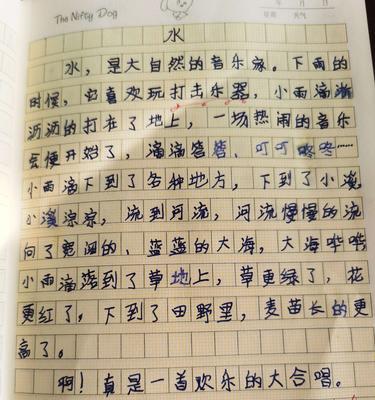 The Nifty Dog
年 月 日
星期 天气
水
水,是大自然的音乐家。下雨的
时候,它喜欢玩打击乐器,小雨滴淅
沥沥的打在了地上,一场热闹的音乐
会便开始了,滴滴答答、叮叮咚咚……
小雨滴下到了各种地方,下到了小溪,
小溪淙淙,流到河流,河流慢慢的流
向了宽阔的、蓝蓝的大海,大海哗哗,
小雨滴落到了草地上,草更绿了,花
更红了。下到了田野里,麦苗长的更
高了。
啊!真是一首欢乐的大合唱。